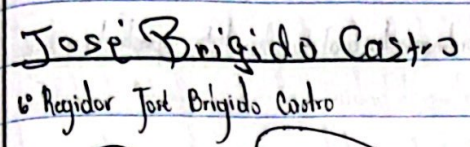 José Brigido Castro
6° Regidor José Brigido Castro